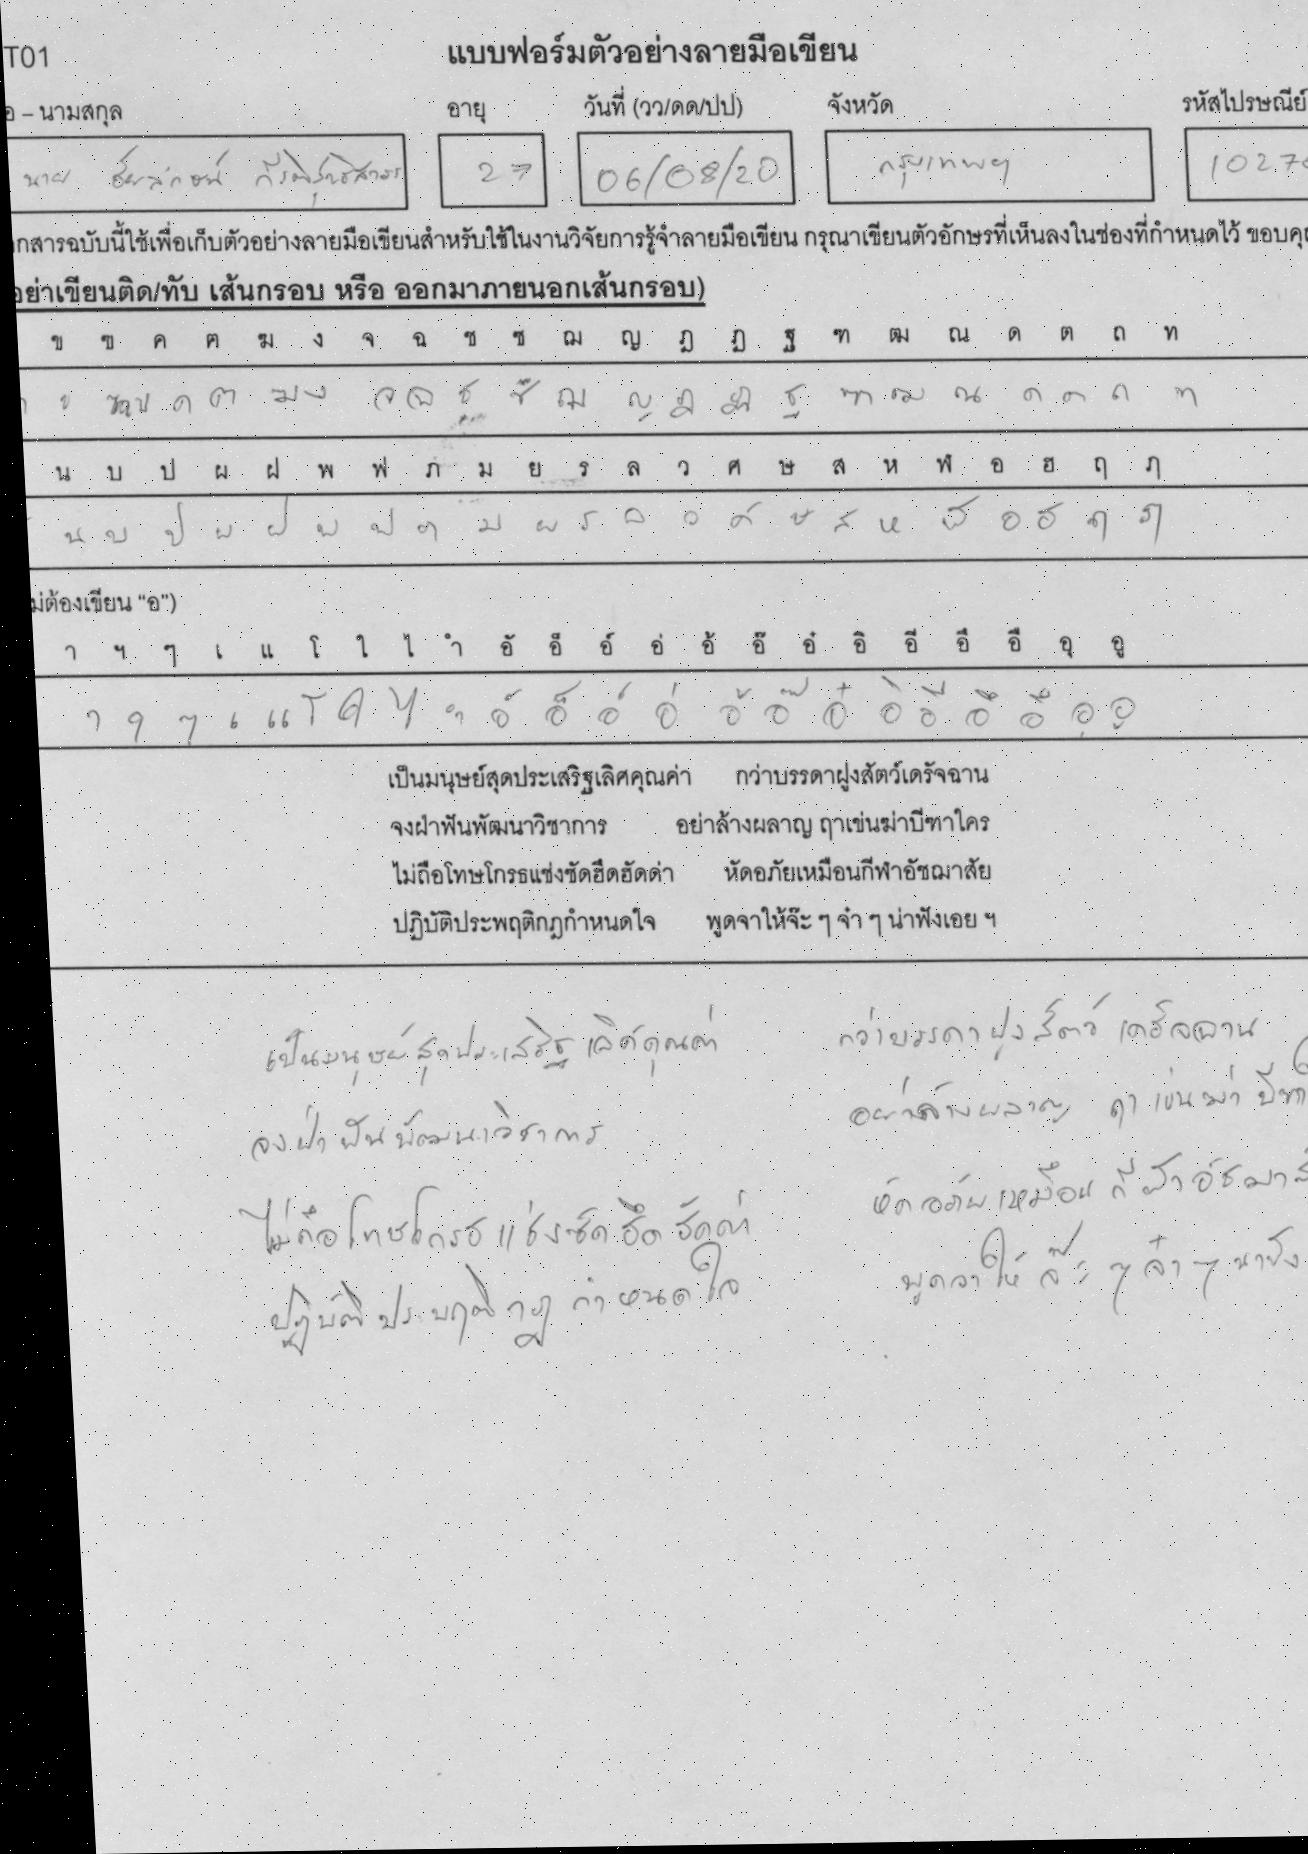 T01 แบบฟอร์มตัวอย่างลายมือเขียน
อ – นามสกุล อายุ วันที่ (วว/ดด/ปป) จังหวัด รหัสไปรษณีย์
นาย 27 06/08/20 กรุงเทพฯ 1027
กสารฉบับนี้ใช้เพื่อเก็บตัวอย่างลายมือเขียนสำหรับใช้ในงานวิจัยการรู้จำลายมือเขียน กรุณาเขียนตัวอักษรที่เห็นลงในช่องที่กำหนดไว้ ขอบคุณ
อย่าเขียนติด/ทับ เส้นกรอบ หรือ ออกมาภายนอกเส้นกรอบ)
ข ฃ ค ฅ ฆ ง จ ฉ ช ซ ฌ ญ ฎ ฏ ฐ ฑ ฒ ณ ด ต ถ ท
ข ค ฅ ฆ ง จ ฉ ช ซ ฌ ญ ฎ ฏ ฐ ฑ ฒ ณ ด ต ถ ท
น บ ป ผ ฝ พ ฟ ภ ม ย ร ล ว ศ ษ ส ห ฬ อ ฮ ฤ ฦ
น บ ป ผ ฝ พ ฟ ภ ม ย ร ล ว ศ ษ ส ห ฬ อ ฮ ฤ ฦ
ม่ต้องเขียน “อ”)
า ฯ ๆ เ แ โ ใ ไ ำ อั อ็ อ์ อ่ อ้ อ๊ อ๋ อิ อี อึ อื อุ อู
า ฯ ๆ เ แ โ ใ ไ ำ อั อ็ อ์ อ่ อ้ อ๊ อ๋ อิ อี อึ อื อุ อู
เป็นมนุษย์สุดประเสริฐเลิศคุณค่า กว่าบรรดาฝูงสัตว์เดรัจฉาน
จงฝ่าฟันพัฒนาวิชาการ อย่าล้างผลาญ ฤาเข่นฆ่าบีฑาใคร
ไม่ถือโทษโกรธแช่งซัดฮึดฮัดด่า หัดอภัยเหมือนกีฬาอัชฌาสัย
ปฏิบัติประพฤติกฎกำหนดใจ พูดจาให้จ๊ะ ๆ จ๋า ๆ น่าฟังเอย ฯ
เป็นมนุษย์สุดประเสริฐเลิศคุณค่า กว่าบรรดาฝูงสัตว์เดรัจฉาน
จงฝ่าฟันพัฒนาวิชาการ อย่าล้างผลาญ ฤาเข่นฆ่าบีฑาใ
ไม่ถือโทษโกรธแช่งซัดฮึดฮัดด่า หัดอภัยเหมือนกีฬาอัชฌาสั
ปฏิบัติประพฤติกฎกำหนดใจ พูดจาให้จ๊ะ ๆ จ๋า ๆ น่าฟัง